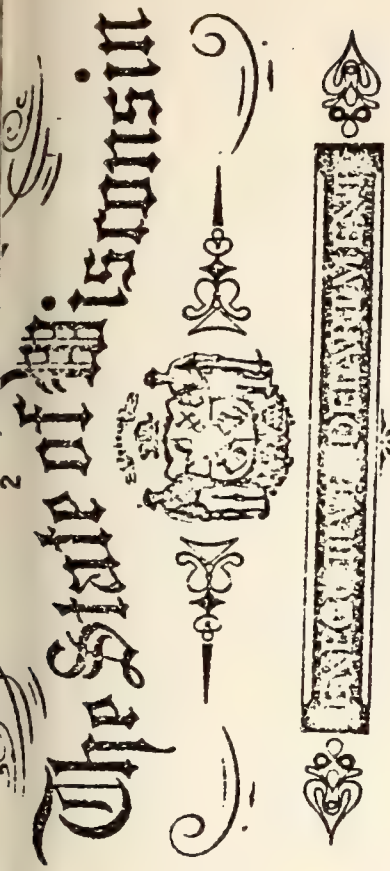 2
The State of Wisconsin
EXECUTIVE DEPARTMENT